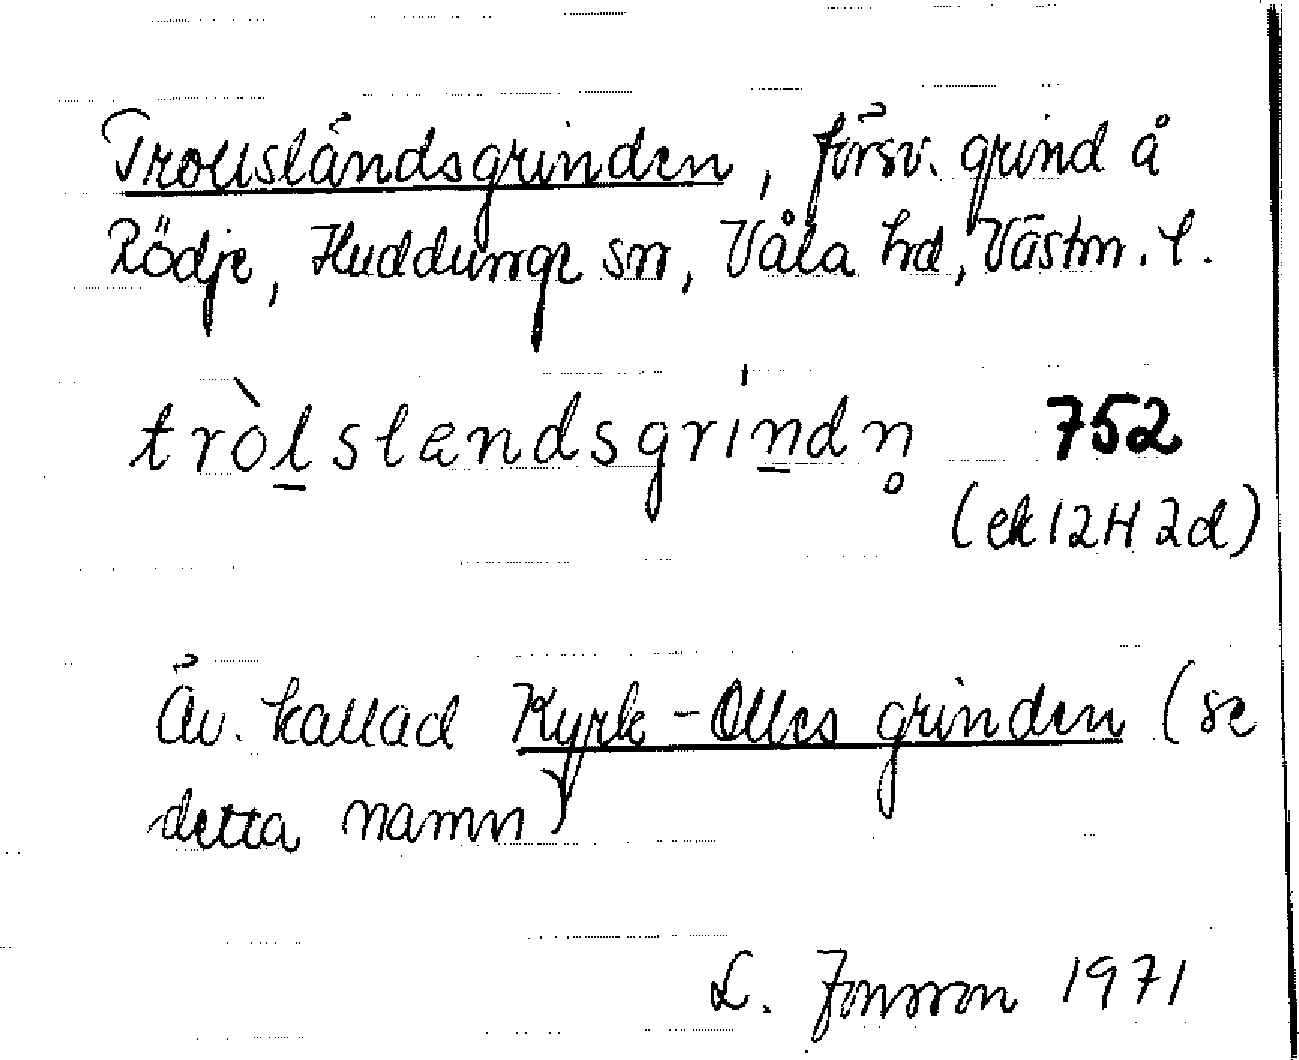 Trollsländsgrinden, försv. grind å
Rödje, Huddunge sn, Våla hd, Västm. l.
tròl̠slændsgrin̠dn̥ 752
(ek 12H 2d)
Äv. kallad Kyrk-Olles grinden (se
detta namn)
L. Jonsson 1971